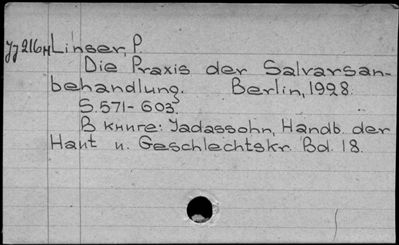 Jj216H Linser, P.
Die Praxis der Salvarsan-
behandlung. Berlin, 1928.
S. 571-603.
В книге: Jadassohn, Handb. der
Haut u. Geschlechtskr. Bd. 18.